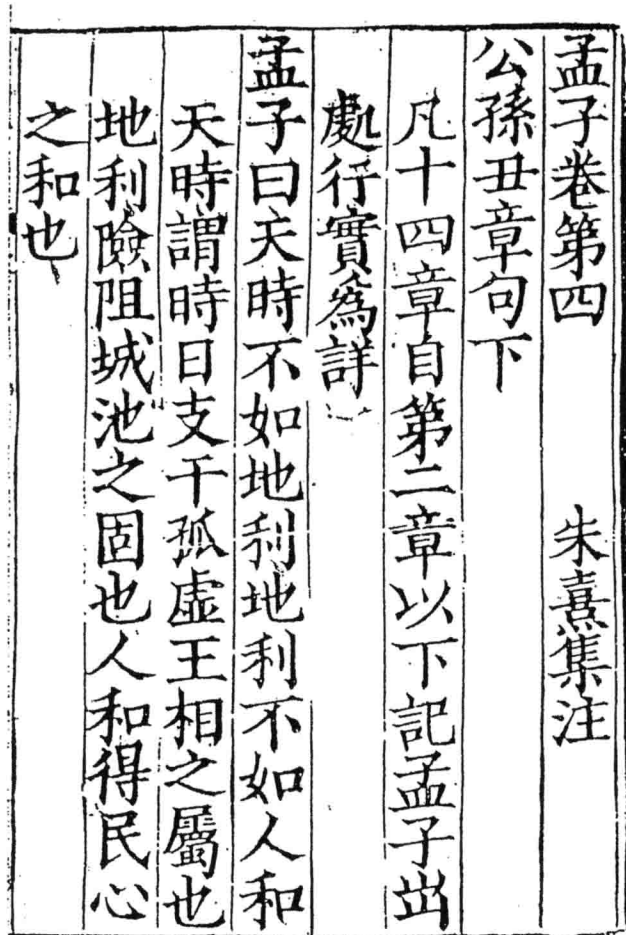 孟子卷第四　朱熹集注
公孫丑章句下
凡十四章自第二章以下記孟子出
處行實爲詳
孟子曰天時不如地利地利不如人和
天時謂時日支干孤虛王相之屬也
地利險阻城池之固也人和得民心
之和也